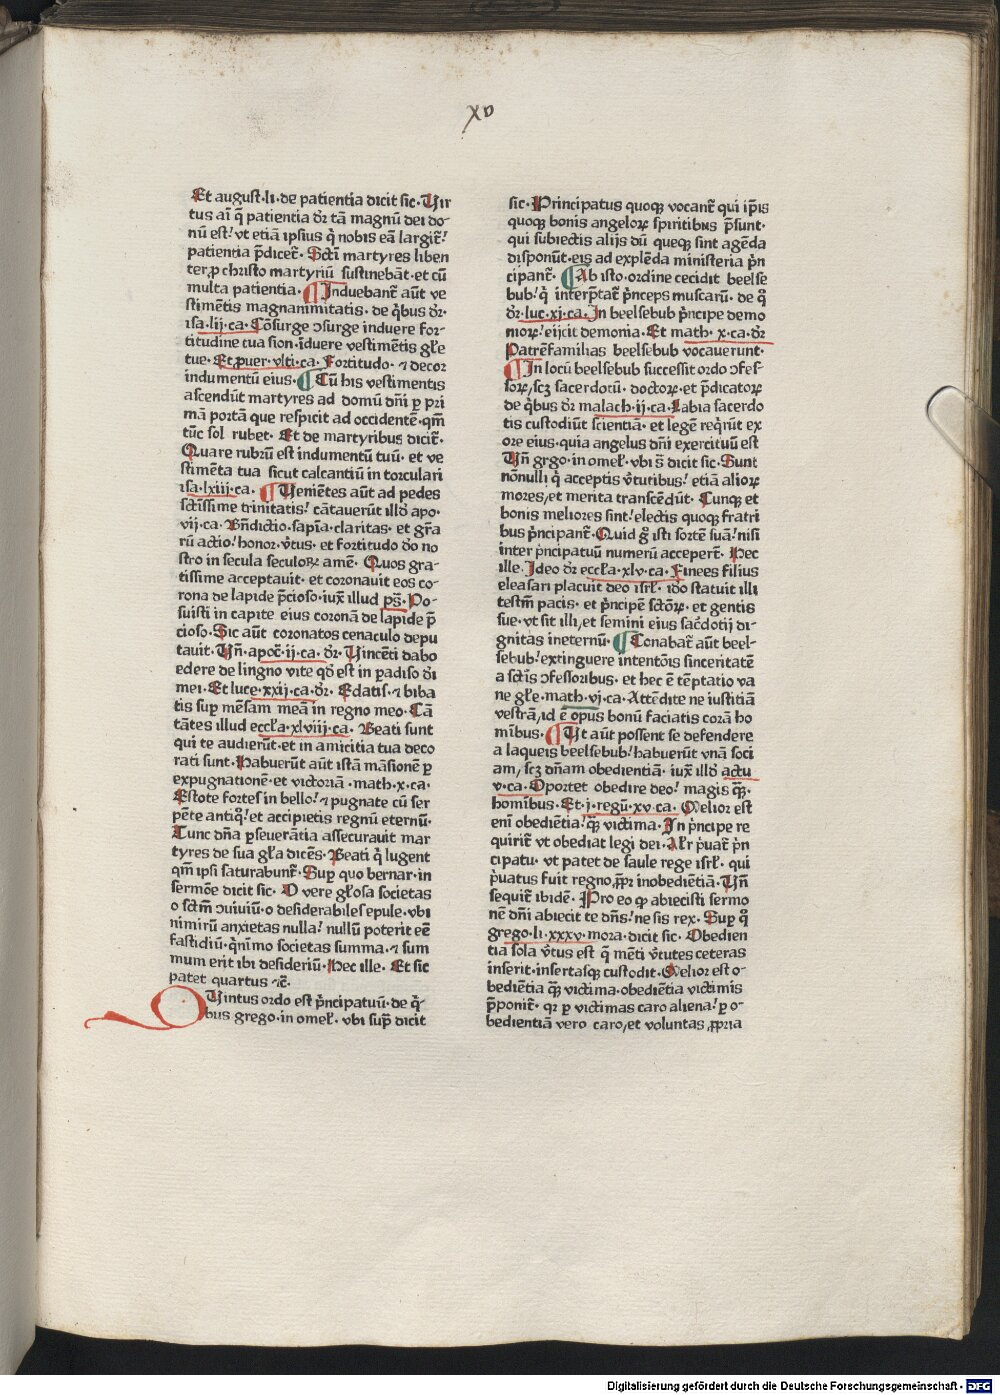 xv
Et august·li·de patientia dicit sic·Uir
tus ai q̄ patientia dr̄ tā magnū dei do-
nū est! vt etiā ipsius q̇ nobis eā largit᷑!
patientia p̄dicet᷑· Scti martyres liben
ter,ꝓ christo martyriū sustinebāt·et cū
multa patientia· ¶Induebant᷑ aūt ve
stimētis magnanimitatis· de q̇bus dr̄·
isa·lij·ca· Cōsurge ↄsurge induere for-
titudine tua sion·īduere vestimētis gl̄e
tue· Et,puer·vlti·ca· Fortitudo·⁊ decor
indumentū eius· ¶Cū his vestimentis
ascendūt martyres ad domū dn̄i ꝑ pri
mā portā que respicit ad occidentē·qm̄
tūc sol rubet· Et de martyribus dicit᷑·
Quare rubrū est indumentū tuū· et ve
stimēta tua sicut calcantiū in torculari
isa·lxiij·ca· ¶Ueniētes aūt ad pedes
sctissime trinitatis! cātauerūt illd̄ apo·
vij·ca· Bn̄dictio·sapīa·claritas· et gr̄a
rū actio! honor·v̇tus· et fortitudo do no
stro in secula seculoꝝ amē· Quos gra-
tissime acceptauit· et coronauit eos co-
rona de lapide p̄cioso·iux̄ illud ps̄· Po-
suisti in capite eius coronā de lapide p̄
cioso·Sic aūt coronatos cenaculo depu
tauit· Un̄·apoc̄·ij·ca·dr̄· Uincēti dabo
edere de lingno vite qd̄ est in padiso di
mei·Et luce·xxij·ca·dr̄· Edatis·⁊ biba
tis supꝛ mēsam meā in regno meo·Cā
tātes illud eccl̄a·xlviij·ca· Beati sunt
qui te audierūt·et in amicitia tua deco
rati sunt·Habuerūt aūt istā māsionē ꝑ
expugnationē·et victoriā·math·x·ca·
Estote fortes in bello!⁊ pugnate cū ser
pēte antiq̊! et accipietis regnū eternū·
Tunc dn̄a ꝑseuerātia assecurauit mar
tyres de sua gl̄a dicēs· Beati q̇ lugent
qm̄ ipsi saturabunt᷑· Sup quo bernar·in
sermōe dicit sic· O vere gl̄osa societas
o sctm̄ ↄuiuiū·o desiderabiles epule·vbi
nimirū anxietas nulla! nullū poterit eē
fastidiū·q̇nīmo societas summa·⁊ sum
mum erit ibi desideriū·Hec ille· Et sic
patet quartus ⁊c̄·
QUintus ordo est p̄ncipatuū·de q̇-
bus grego·in omel̄·vbi sup̄ dicit
sic·Principatus quoqꝫ vocant᷑ qui ip̄is
quoqꝫ bonis angeloꝝ spiritibus p̄sunt·
qui subiectis alijs dū queqꝫ sint agēda
disponūt·eis ad explēda ministeria p̄n
cipant᷑· ¶Ab isto·ordine cecidit beelse
bub! q̇ interp̄tat᷑ p̄nceps muscarū· de q̊
dr̄·luc·xj·ca·In beelsebub p̄ncipe demo
nioꝝ! eijcit demonia· Et math·x·ca·dr̄
Patrēfamilias beelsebub vocauerunt·
¶In locū beelsebub successit ordo ↄfes-
soꝝ/scꝫ sacerdotū· doctoꝝ·et p̄dicatoꝝ
de q̇bus dr̄ malach·ij·ca·Labia sacerdo
tis custodiūt scientiā· et legē req̇rūt ex
ore eius·quia angelus dn̄i exercituū est
Un̄ grgo·in omel̄·vbi s̄ dicit sic·Sunt
nōnulli q̇ acceptis v̇tutibus! etiā alioꝝ
mores/et merita transcēdūt· Cunqꝫ et
bonis meliores sint! electis quoqꝫ fratri
bus p̄ncipant᷑·Quid g̊ isti sortē suā! nisi
inter p̄ncipatuū numerū acceperē· Hec
ille·Ideo dr̄ eccl̄a·xlv·ca·Finees filius
eleasari placuit deo isrl̄·iдo statuit illi
testm̄ pacis· et p̄ncipē sctoꝝ·et gentis
sue·vt sit illi/et semini eius sac̄dotij di-
gnitas ineternū· ¶Conabat᷑ aūt beel-
sebub! extinguere intentōis sinceritatē
a sctis ↄfessoribus·et hec ē tēptatio va
ne gl̄e·math·vj·ca·Attēdite ne iustitiā
vestrā/id ē opus bonū faciatis corā ho
mībus· ¶Ut aūt possent se defendere
a laqueis beelsebub! habuerūt vnā soci
am/scꝫ dn̄am obedientiā· iux̄ illd̄ actu
v·ca·Oportet obedire deo! magis q̄ꝫ·
hoīnibus·Et·j·regū·xv·ca·Melior est
enī obediētia! q̄ꝫ victima·In p̄ncipe re
quirit᷑ vt obediat legi dei·Al̄r ṗuat᷑ p̄n
cipatu·vt patet de saule rege isrl̄· qui
ṗuatus fuit regno,ꝓpꝛ inobediētiā·Un̄
sequit᷑ ibidē· Pro eo ꝙ abiecisti sermo
nē dn̄i abiecit te dn̄s! ne sis rex· Sup q̊
grego·li·xxxv·mora·dicit sic· Obedien
tia sola v̇tus est q̄ mēti v̇tutes ceteras
inserit·insertasqꝫ custodit·Melior est o-
bediētia q̄ꝫ victima·obediētia victimis
p̄ponit᷑· qꝛ ꝑ victimas caro aliena! ꝑ o-
bedientiā vero caro/et voluntas,ꝓpria
Digitalisierung gefördert durch die Deutsche Forschungsgemeinschaft · DFG